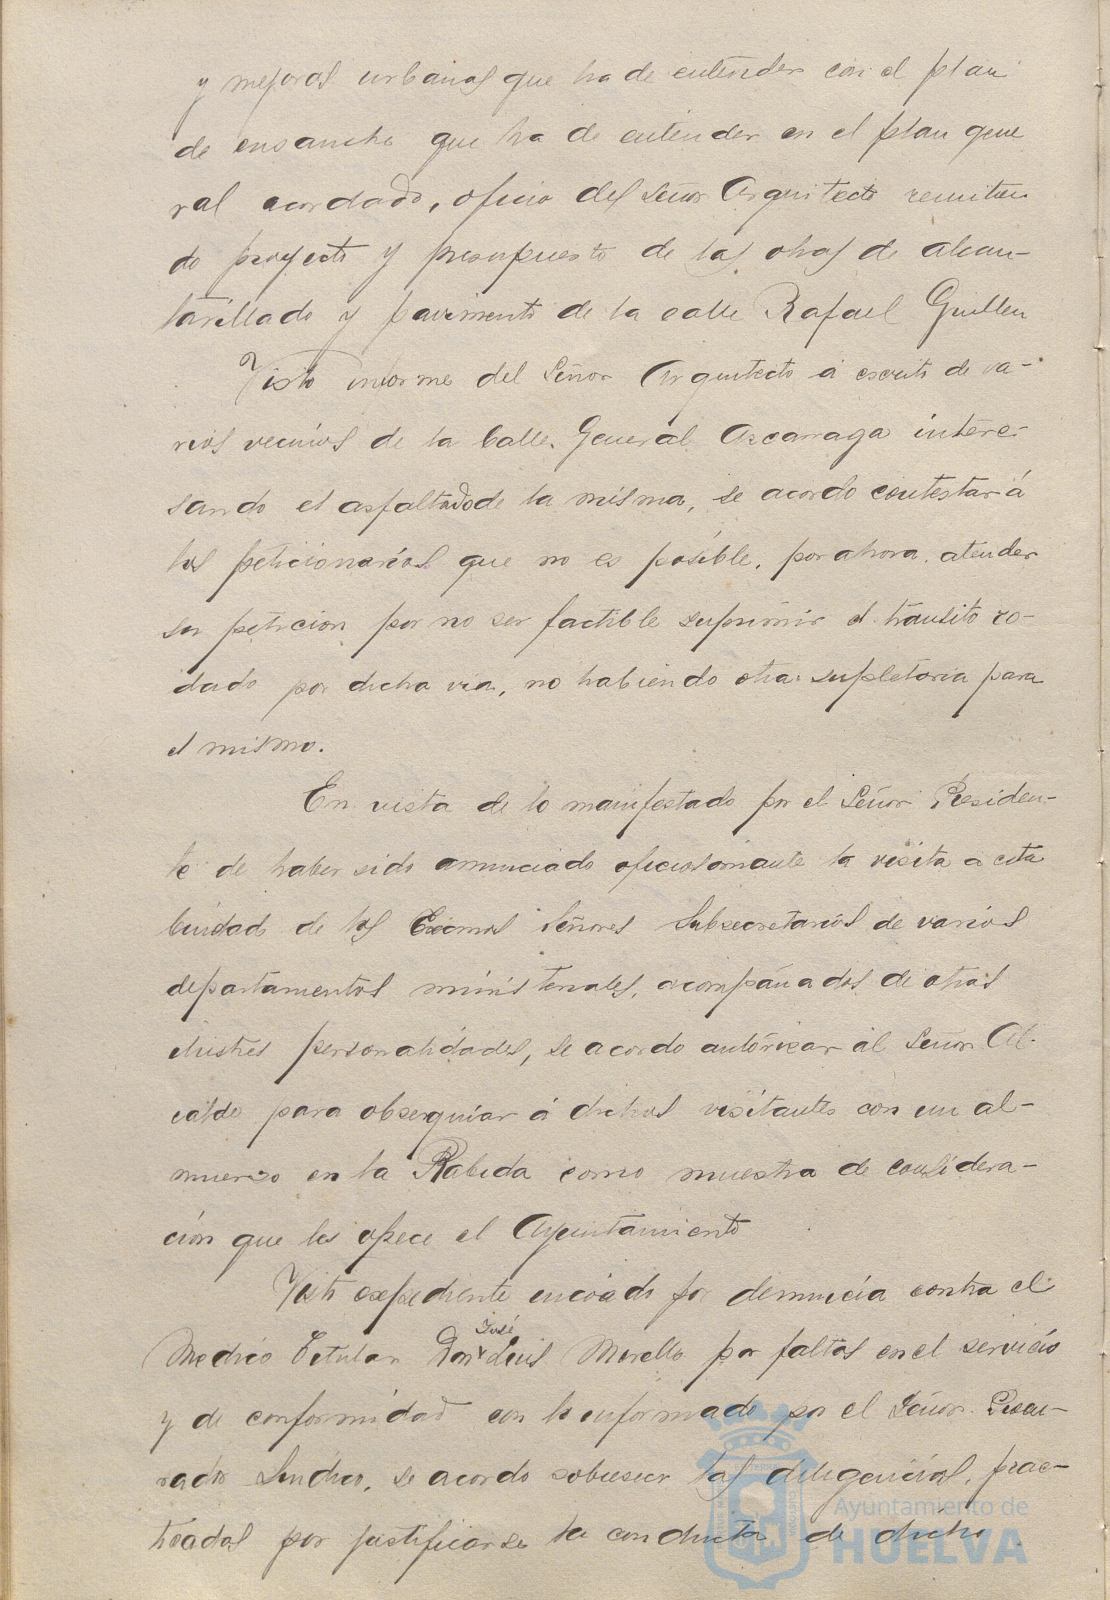 y mejoras urbanas que ha de entender con el plan
de ensanche que ha de entender en el plan gene
ral acordado, oficio del Señor Arquitecto remitien
do proyecto y presupuesto de las obras de alcan-
tarillado y pavimento de la calle Rafael Guillen
Visto informe del Señor Arquitecto á escrito de va-
rios vecinos de la Calle General Azcarraga intere-
sando el asfaltado de la misma, se acordo contestar á
los peticionarios que no es posible, por ahora, atender
su peticion por no ser factible suprimir el tránsito ro-
dado por dicha via, no habiendo otra supletoria para
el mismo.
En vista de lo manifestado por el Señor Presiden-
te de haber sido anunciado oficiosamente la visita a esta
Ciudad de los Excmos Señores Subsecretarios de varios
departamentos ministeriales, acompañados de otras
ilustres personalidades, se acordo autorizar al Señor Al-
calde para obsequiar á dichos visitantes con un al-
muerzo en la Rabida como muestra de considera-
ción que les ofrece el Ayuntamiento
Visto expediente incoado por denuncia contra el
José
Medico Titular Don Luis Morello por faltas en el servicio
y de conformidad con lo informado por el Señor Procu-
rador Sindico, se acordo sobreseer las diligencias, prac-
ticadas por justificarse la conducta de dicho
Ayuntamiento de
HUELVA